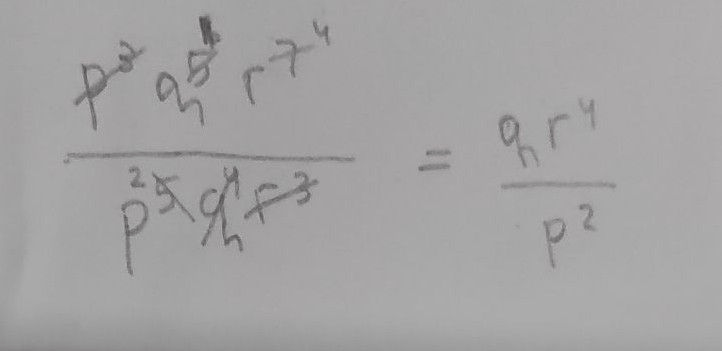 p³ q⁵ ¹ r⁷ ⁴
p² ⁵ q⁴ r³
= qr⁴
p²